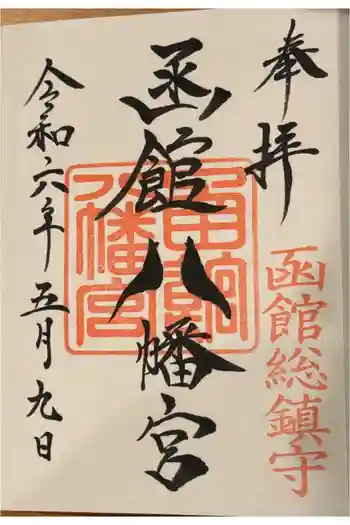 奉拝
函館総鎮守
函館八幡宮
函館八幡宮
令和六年五月九日